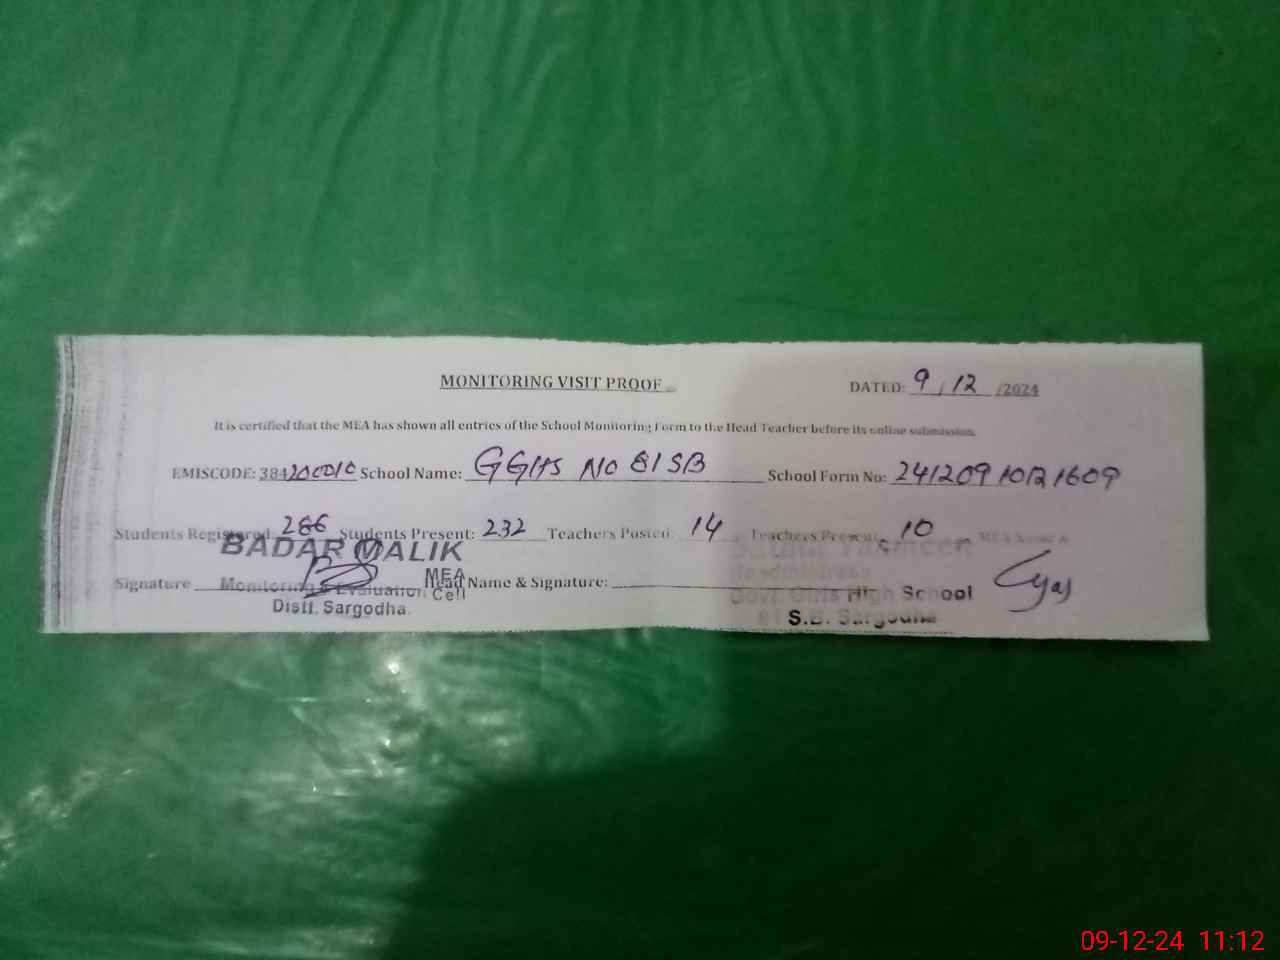 MONITORING VISIT PROOF
DATED: 9/12/2024
It is certified that the MEA has shown all entries of the School Monitoring Form to the Head Teacher before its online submission.
EMISCODE: 38420001C School Name: GGHS No 81 SB School Form No: 241209
Students Registered: 266 Students Present: 232 Teachers Posted: 14 Teachers Present: 10 MEA Name &
BADAR MALIK
MEA
Signature Head Name & Signature:
Monitoring & Evaluation Cell
Distt. Sargodha.
Headmistress
Govt. Girls High School
81 S.B. Sargodha
09-12-24 11:12